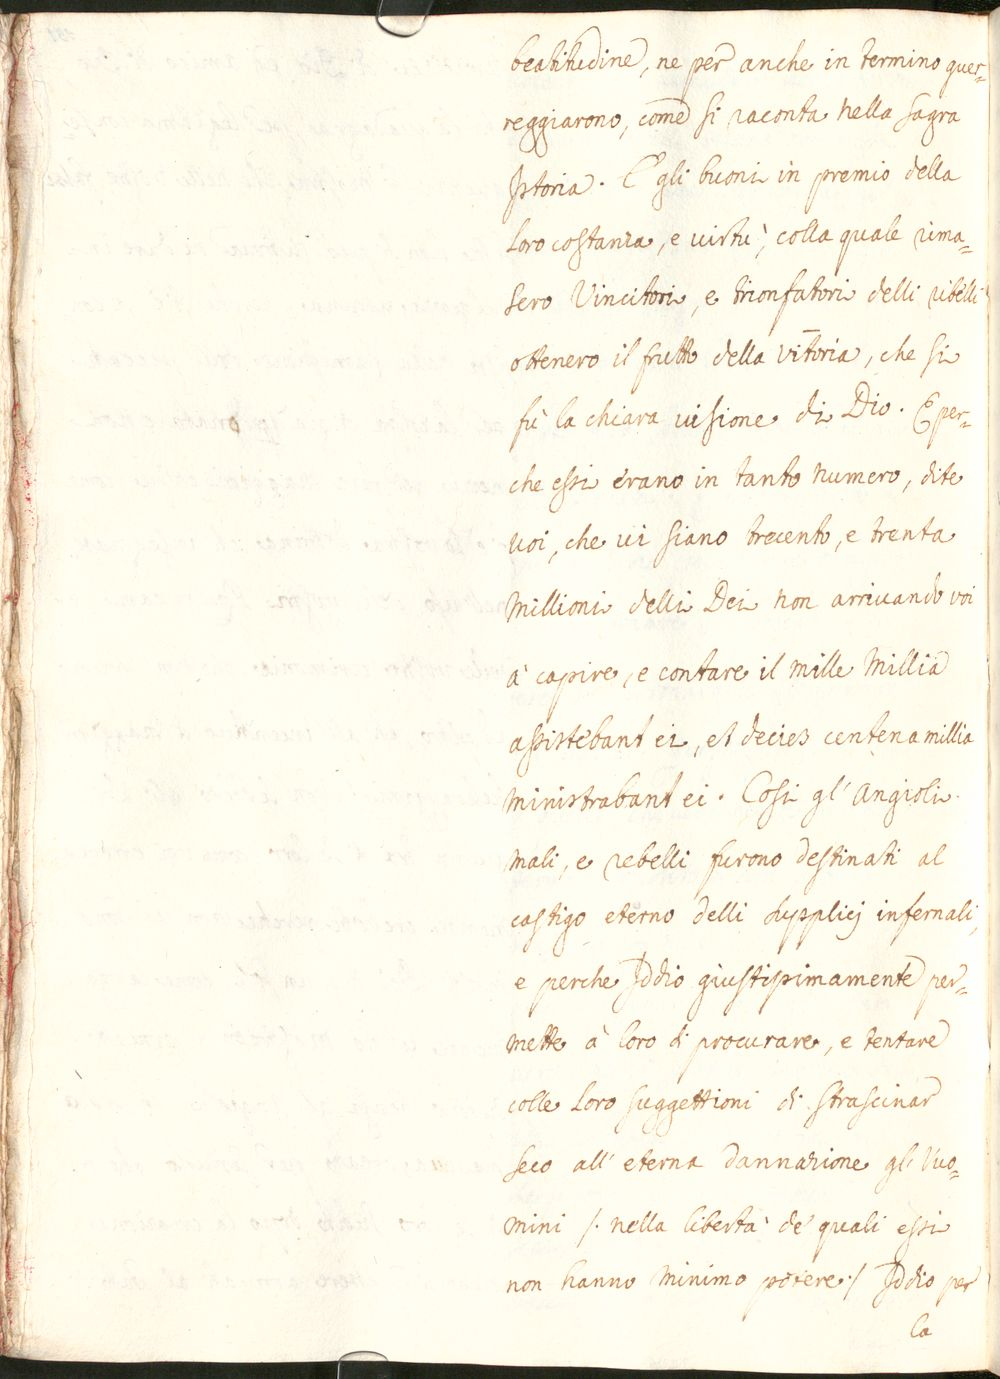 beatitudine, ne per anche in termino quer=
reggiarono, come si raconta nella sagra
Istoria. E gli buoni in premio della
loro costanza, e uirtù, colla quale rima=
sero Vincitori, e trionfatori delli ribelli
ottenero il frutto della vitoria, che si
fù la chiara uisione di Dio. E per=
che essi erano in tanto numero, dite
uoi, che ui siano trecento, e trenta
Millioni delli Dei non arriuando voi
à capire, e contare il mille Millia
assistebant ei, et decies centena millia
ministrabant ei. Cosi gl' Angioli
mali, e rebelli furono destinati al
castigo eterno delli supplicij infernali,
e perche Iddio giustissimamente per=
mette à loro di procurare, e tentare
colle loro suggettioni di strascinar
seco all' eterna dannazione gl' Vuo=
mini /. nella libertà de' quali essi
non hanno minimo potere ./ Iddio per
la